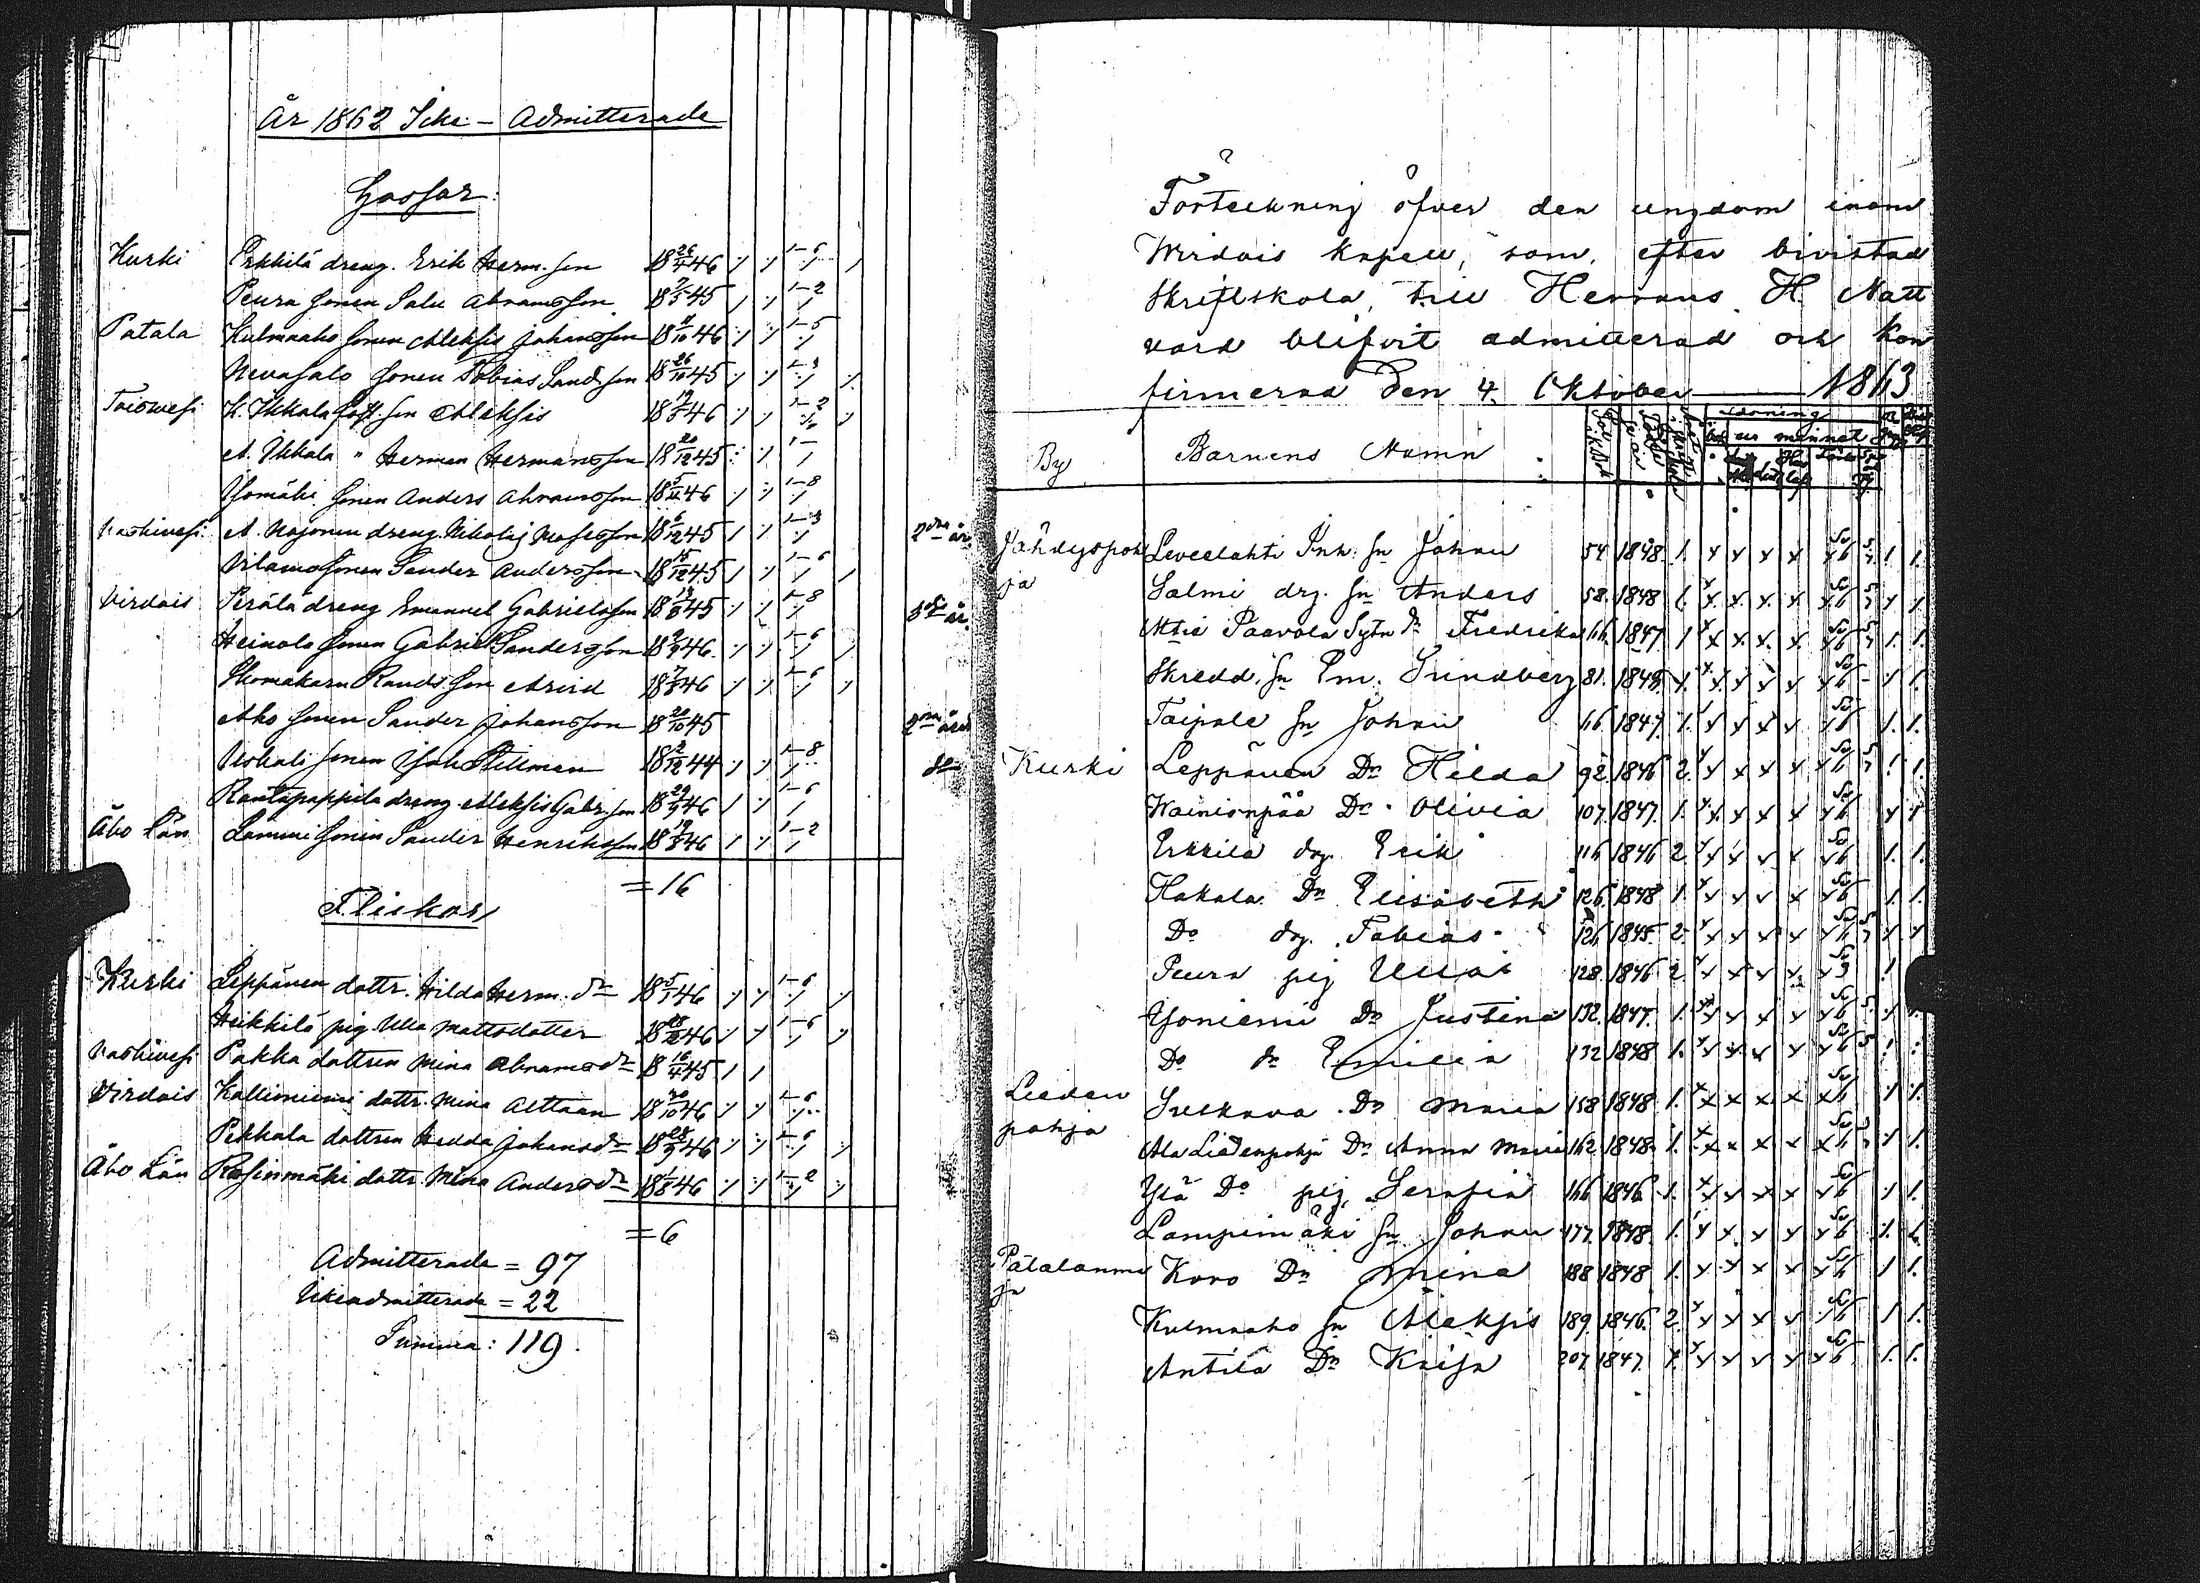 År 1862 Icke - Admitterade
Gossar:
Kurki Erkkilä dreng. Erik Herm. son 18 26/4 46
Peura sonen Salu Abramsson 18 7/5 45
Patala Kulmaaho sonen Aleksis Johansson 18 11/10 46
Nevasalo sonen Tobias Sand. son 18 26/10 45
Toisvesi K. Ikkala son Aleksis 46
A. Ikkala " Herman Hermansson 18 20/12 45
Ylomäki sonen Anders Abramsson 46
Vaskivesi A. Najonen dreng. Nikolaj Matsson 18 6/12 45 2dra år
Vilamo sonen Sander Andersson 18 15/12 45
Virdois Perälä dreng Emanuel Gabrielsson 45 3dje år
Heinola sonen Gabriel Sandersson 18 2/9 46
Arvid 46
Aho sonen Sander Johansson 18 20/10 45 2dra året
Uskali sonen Isak Hillman 18 2/12 44 do
Rantapappila dreng. Aleksis Gabr. son 18 29/9 46
Åbo Län Lammi sonen Sander Henriksson 46
= 16
Flickor
Kurki Leppänen dottr. Hilda Herm. dr 18 5/1 46
Heikkilä pig. Ulla Mattsdotter 46
Vaskivesi Pakka dottren Mina Abramsdr 18 16/4 45
Virdois Kallioniemi dottr. Mina Alttaan 18 20/10 46
Pekkala dottren Hedda Johansdr 18 28/9 46
Åbo Län Rosinmäki dottr. Mina Andersdr 18 1/8 46
= 6
Admitterade = 97
Ickeadmitterade = 22
Summa: 119.
Förteckning öfver den ungdom inom
Wirdois kapell, som, efter bivistad
Skriftskola, till Herrans H. Natt
vard blifvit admitterad och kon
firmerad den 4. Oktober 1863
By Barnens Namn
Jähdyspoh Leveelahti Inh: Sn Johan 54. 1848. 1.
ja Salmi drg. Sn Anders 58. 1848 1.
Paavola Dr Fredrika 66. 1847. 1
Skredd. Sn Em. Grindberg 81. 1848. 1.
Taipale Sn Johan 66 1847. 1.
Kurki Leppänen Dr Hilda 92. 1846 2.
Wainionpää Dr Olivia 107. 1847. 1.
Erkkilä drg. Erik 116 1846 2.
Hakala Dr Elisabeth 126. 1848 1.
Do drg. Tobias 126 1845. 2.
Peura pig Ulla 128. 1846 2
Yloniemi Dr Justina 132. 1847. 1.
Do dr Emilia 132 1848 1.
Lieden Sulkava Dr Maria 158 1848. 1.
pohja Ala Liedenpohja Dr Anna Maria 162. 1848. 1.
Ylä Do pig. Serafia 166 1846 1.
Lampimäki Sn Johan 177. 1848. 1.
Pätalanma Koro Dr Mina 188 1848 1.
ja Kulmaaho Sn Aleksis 189. 1846. 2.
Antila Dr Kaisa 207. 1847. 1.